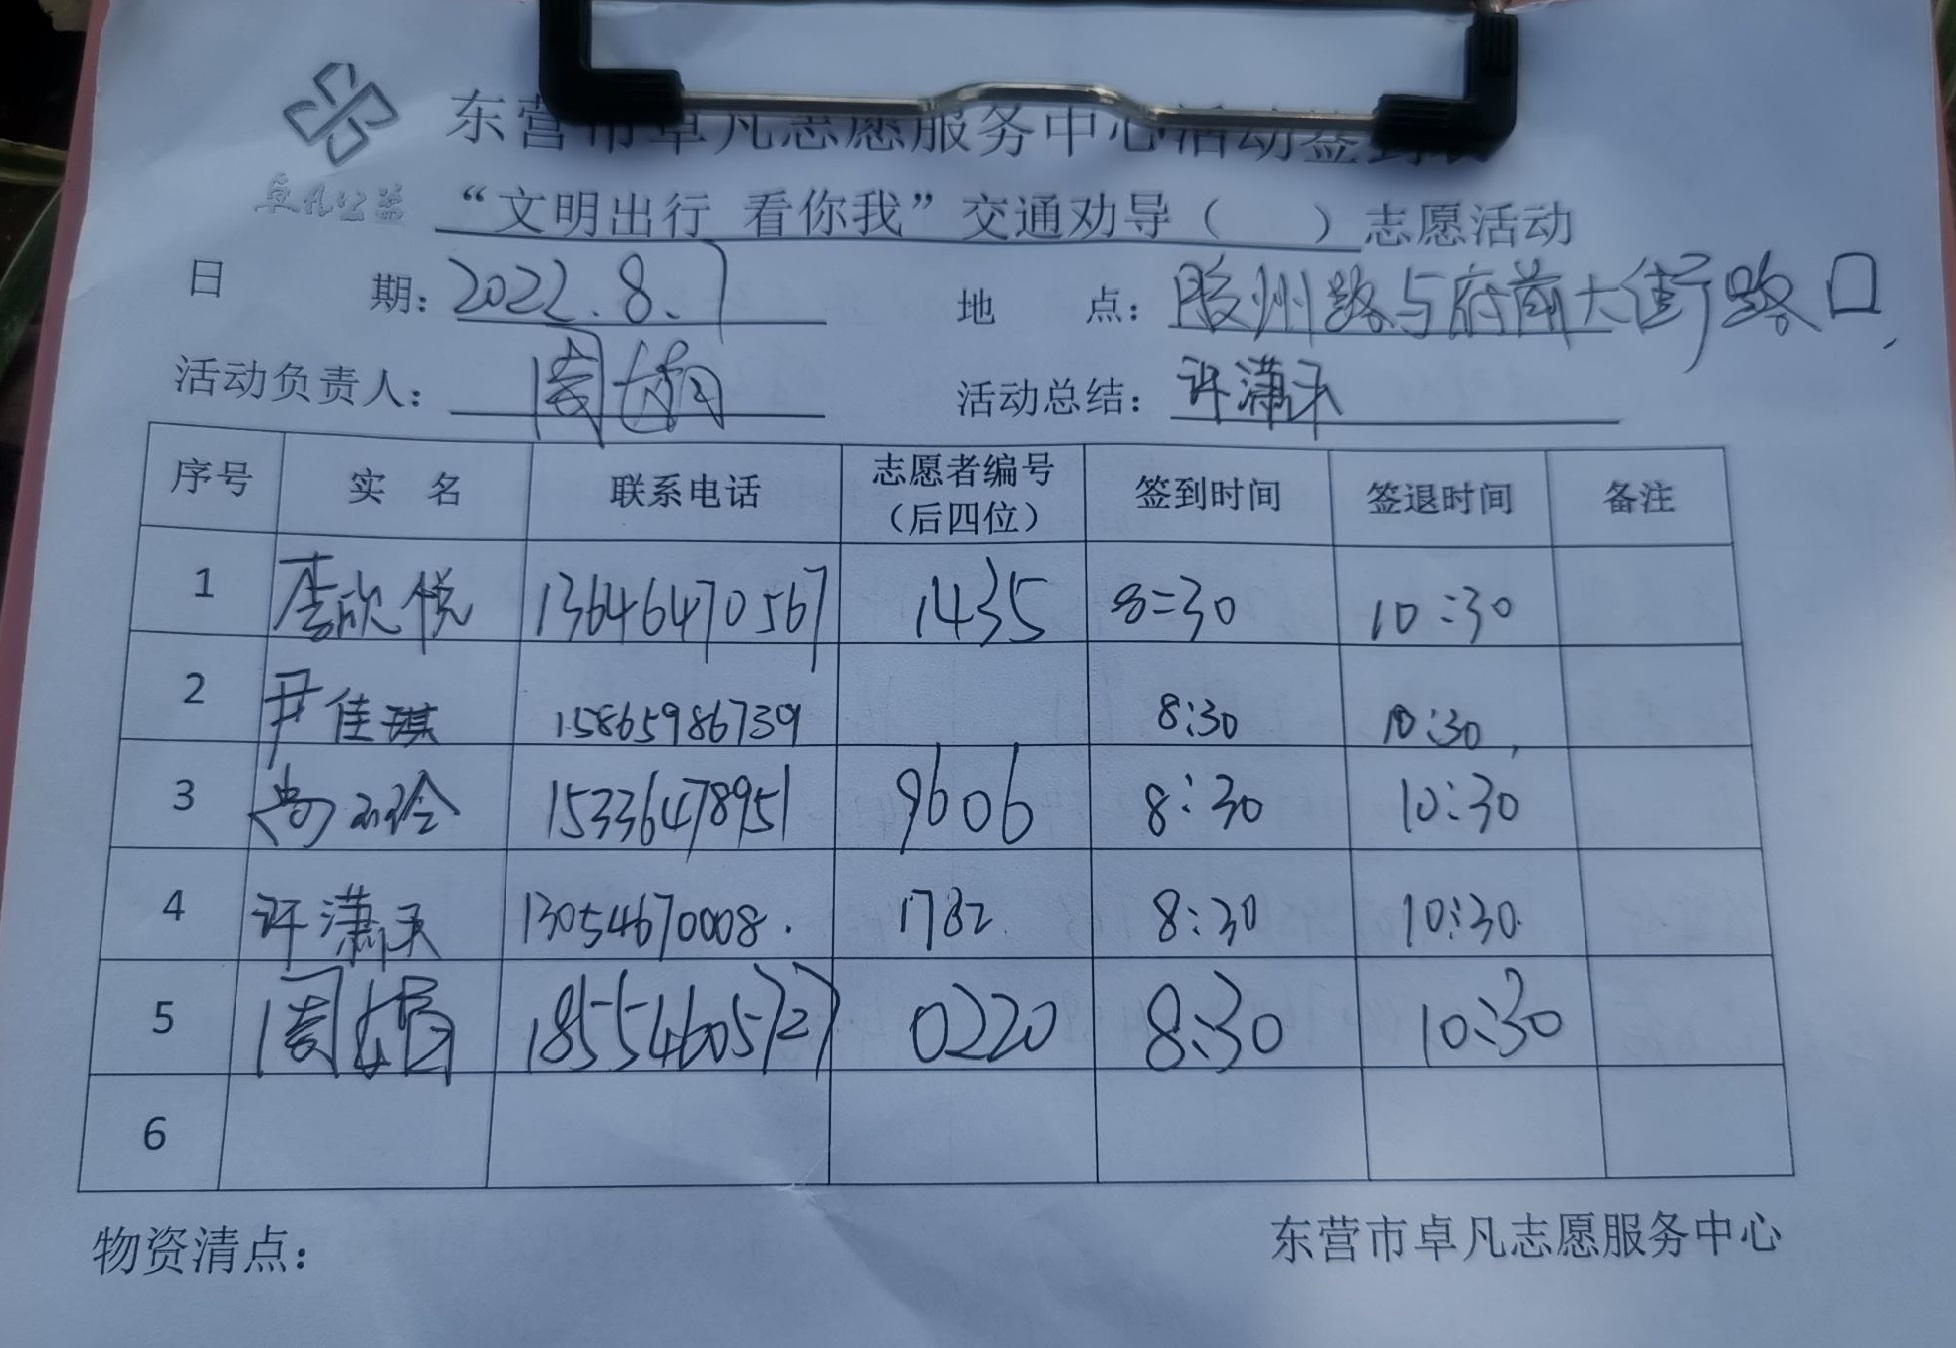 东营市卓凡志愿服务中心活动签到表
卓凡公益
“文明出行 看你我”交通劝导（ ）志愿活动
日 期：2022.8.7 地 点：胶州路与府前大街路口
活动负责人：周婧 活动总结：许潇禾
序号 实 名 联系电话 志愿者编号（后四位） 签到时间 签退时间 备注
1 李欣悦 13646470567 1435 8:30 10:30
2 尹佳琪 15865986739 8:30 10:30
3 尚 15336478951 9606 8:30 10:30
4 许潇禾 13054670008. 1782 8:30 10:30
5 周婧 18554605727 0220 8:30 10:30
6
物资清点：
东营市卓凡志愿服务中心